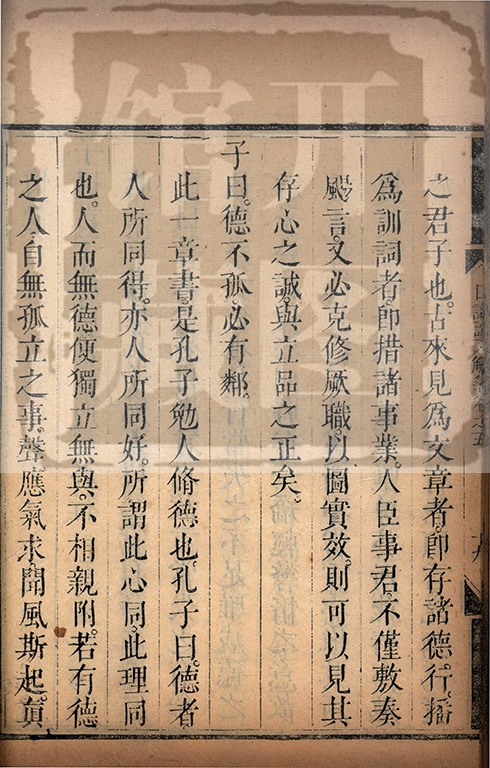 之君子也。古來見爲文章者。卽存諸德行。播
爲訓詞者。卽措諸事業。人臣事君。不僅敷奏
颺言。又必克修厥職。以圖實效。則可以見其
存心之誠。與立品之正矣。
子曰。德不孤。必有鄰。
此一章書。是孔子勉人脩德也。孔子曰。德者
人所同得。亦人所同好。所謂此心同。此理同
也。人而無德。便獨立無與。不相親附。若有德
之人。自無孤立之事。聲應氣求。聞風斯起。貞